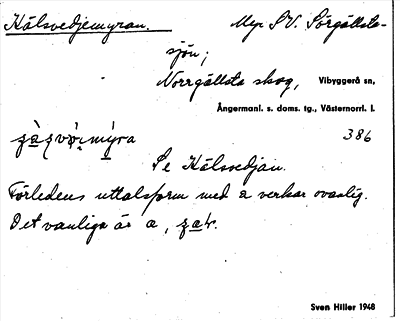 Kälsvedjemyran. Myr S.V. Sörgällsta-
sjön;
Norrgällsta skog, Vibyggerå sn,
Ångermanl. s. doms. tg., Västernorrl. l.
386
Se Kälsvedjan.
Förledens uttalsform med a verkar ovanlig.
Det vanliga är
Sven Hiller 1948